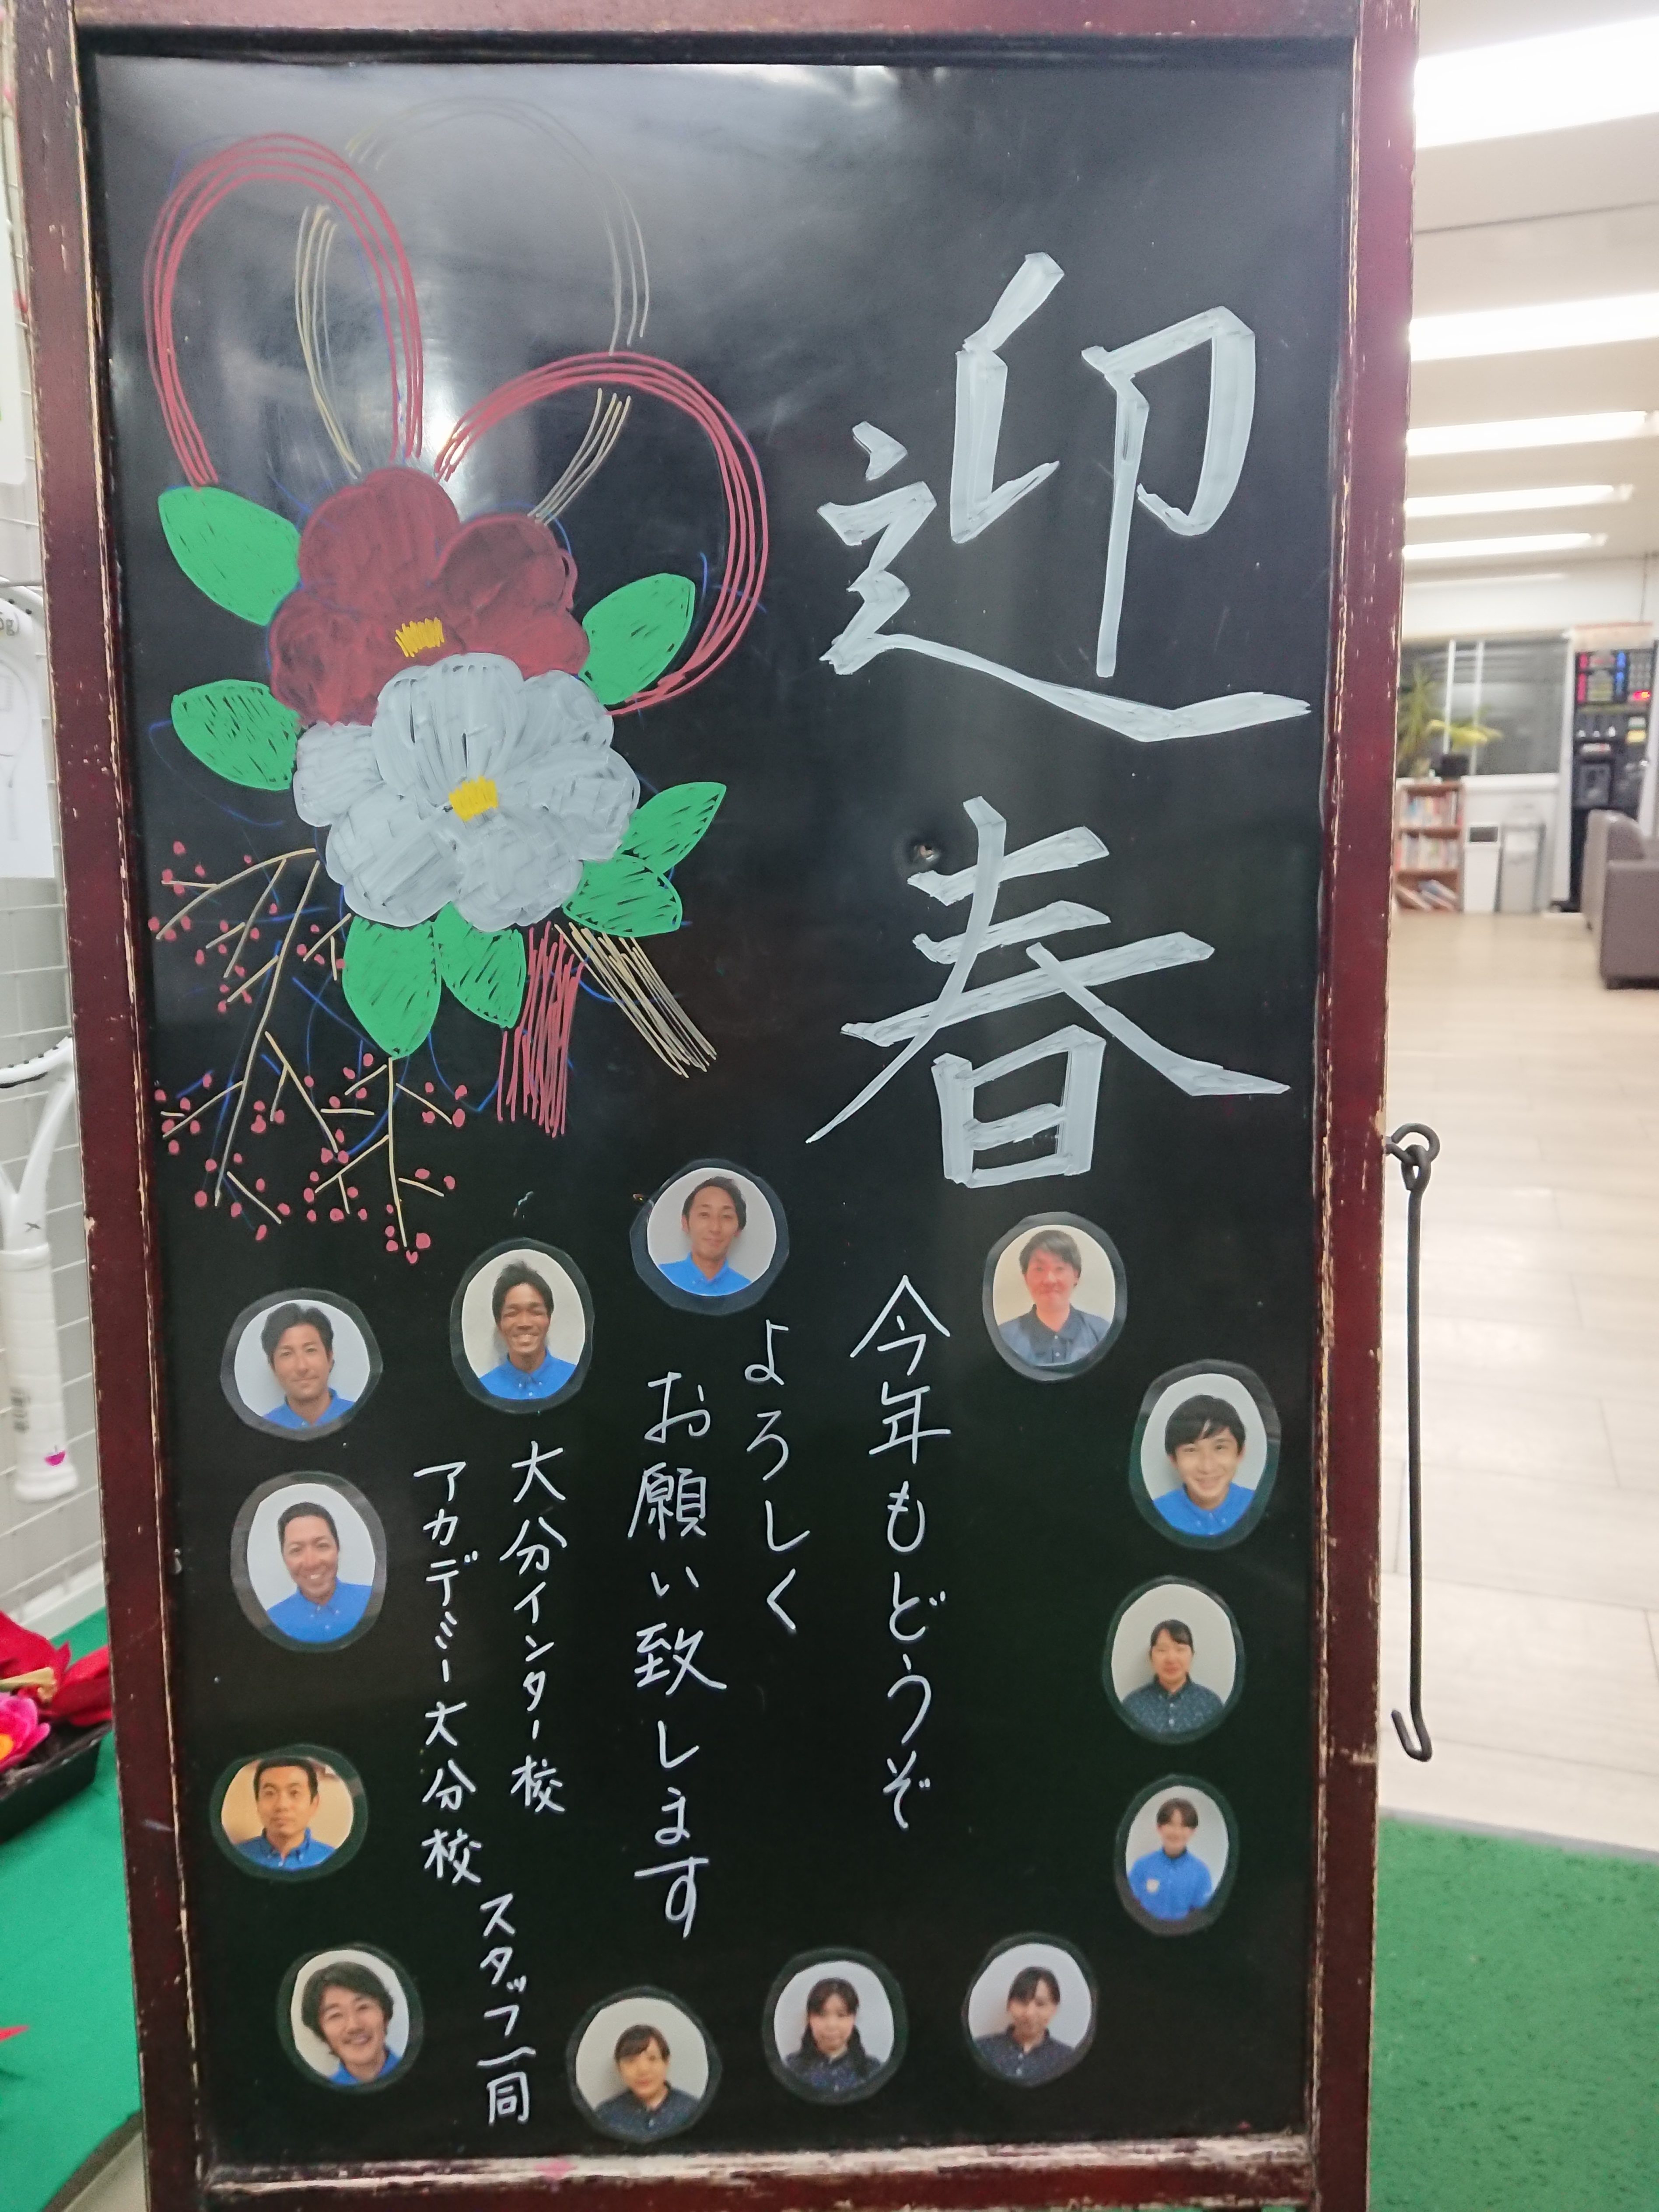 迎春
今年もどうぞ
よろしく
お願い致します
大分インター校
アカデミー大分校
スタッフ一同